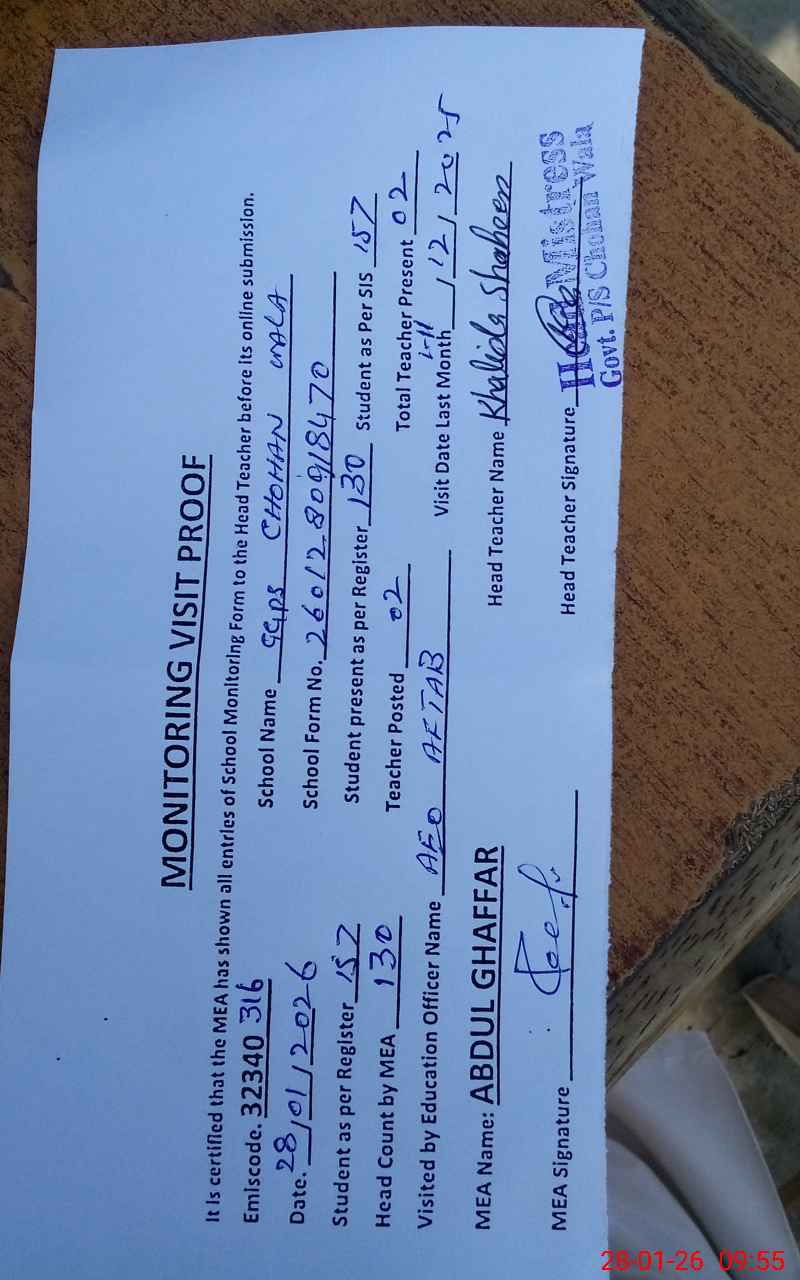 MONITORING VISIT PROOF
It is certified that the MEA has shown all entries of School Monitoring Form to the Head Teacher before its online submission.
Emiscode. 32340 316 School Name GGPS CHOHAN WALA
Date. 28/01/2026 School Form No. 2601280918470
Student as per Register 157 Student present as per Register 130 Student as Per SIS 157
Head Count by MEA 130 Teacher Posted 02 Total Teacher Present 02
Visited by Education Officer Name AEO AFTAB Visit Date Last Month 1/12/2025
MEA Name: ABDUL GHAFFAR Head Teacher Name Khalida Shaheen
MEA Signature Head Teacher Signature
Head Mistress
Govt. P/S Chohan Wala
28-01-26 09:55